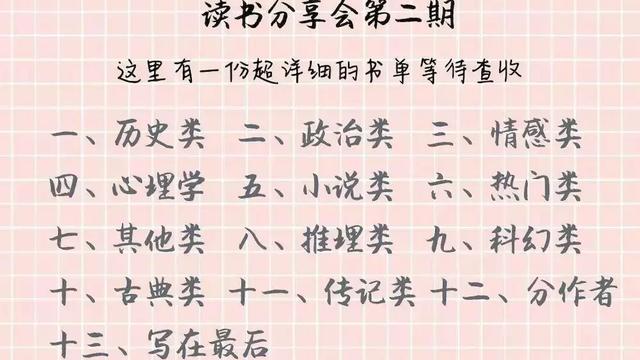 读书分享会第二期
这里有一份超详细的书单等待查收
一、历史类 二、政治类 三、情感类
四、心理学 五、小说类 六、热门类
七、其他类 八、推理类 九、科幻类
十、古典类 十一、传记类 十二、分作者
十三、写在最后